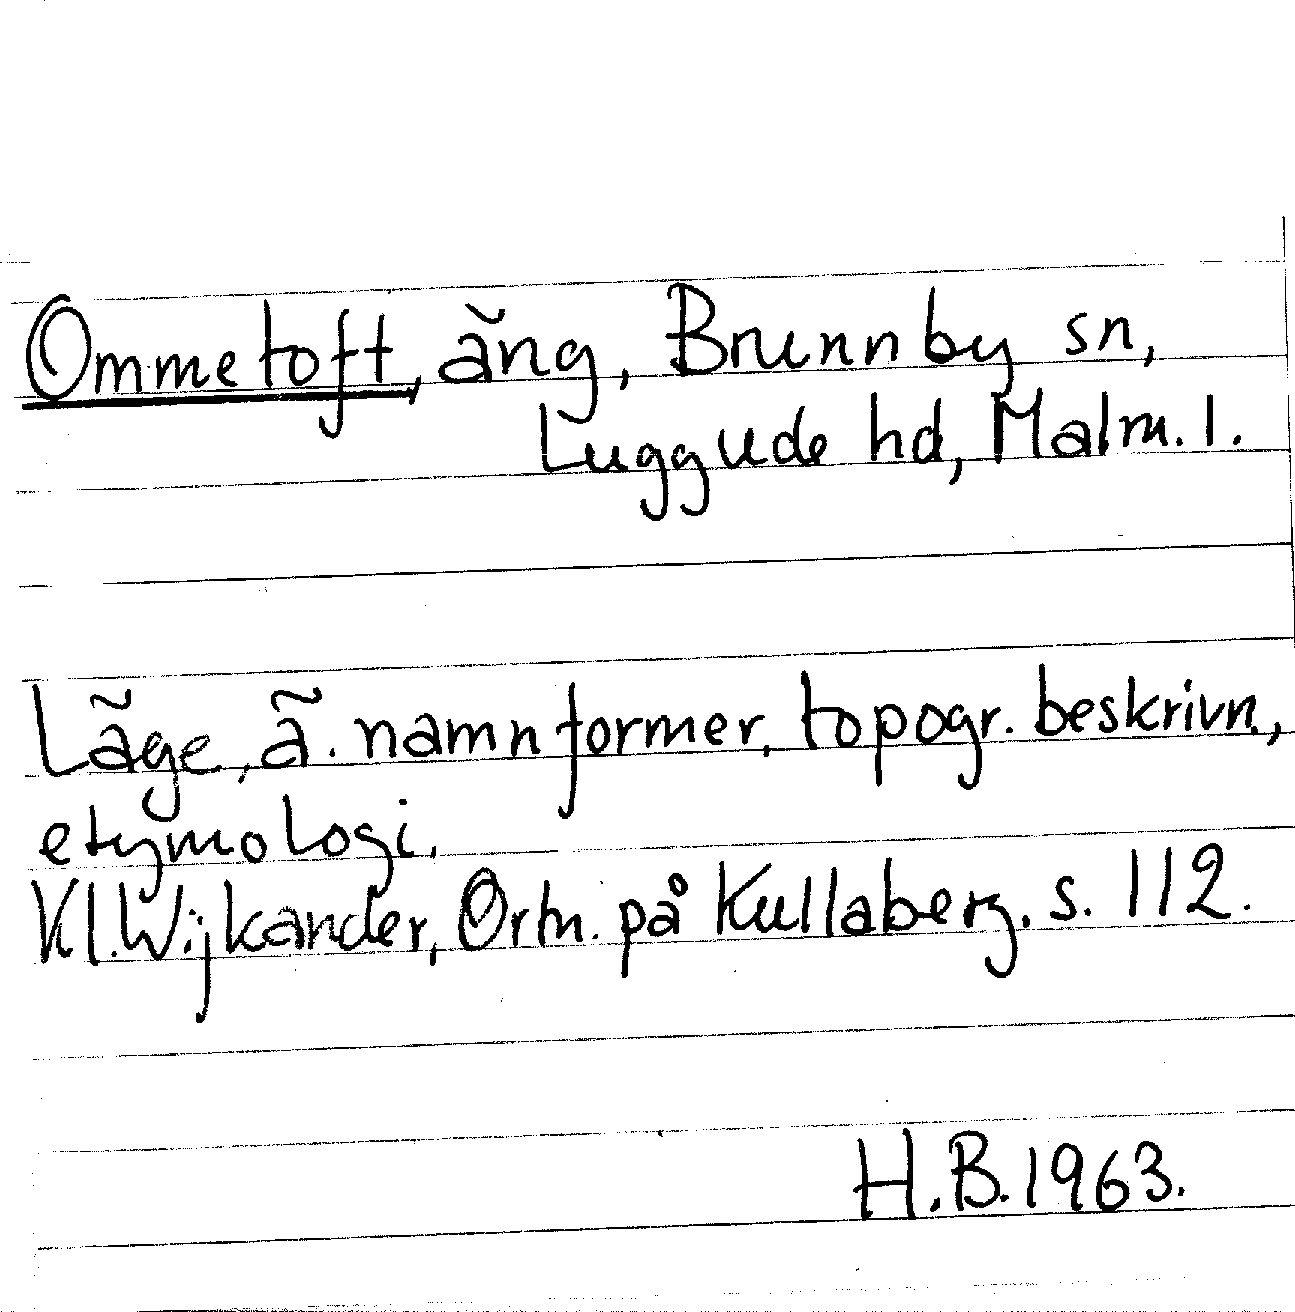 Ommetoft, äng, Brunnby sn,
Luggude hd, Malm. l.
Läge, ä. namnformer, topogr. beskrivn.,
etymologi.
Kl. Wijkander, Ortn. på Kullaberg. s. 112.
H.B. 1963.